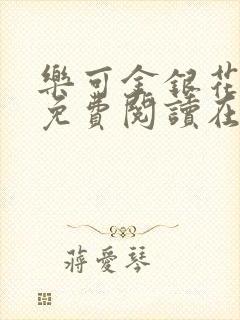 樂可金銀花
免費閱讀在
蔣愛琴